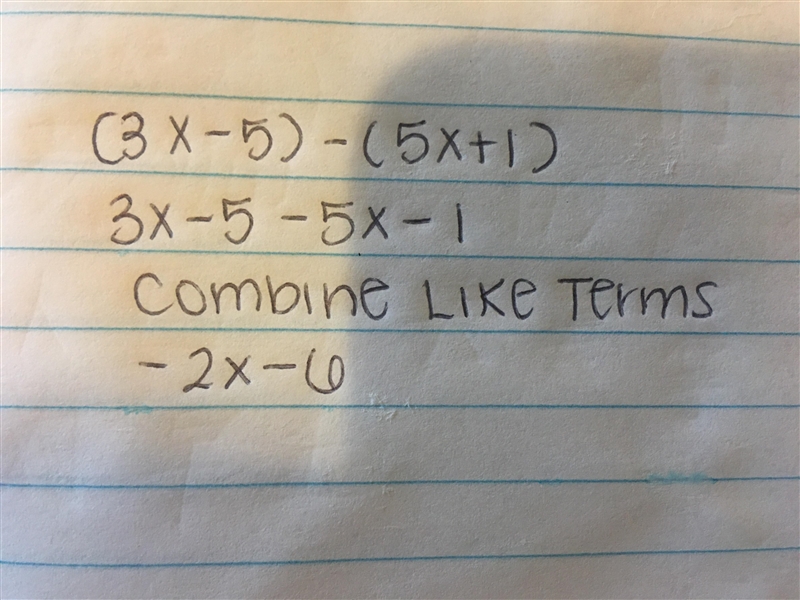 (3x-5)-(5x+1)
3x-5-5x-1
Combine Like Terms
-2x-6